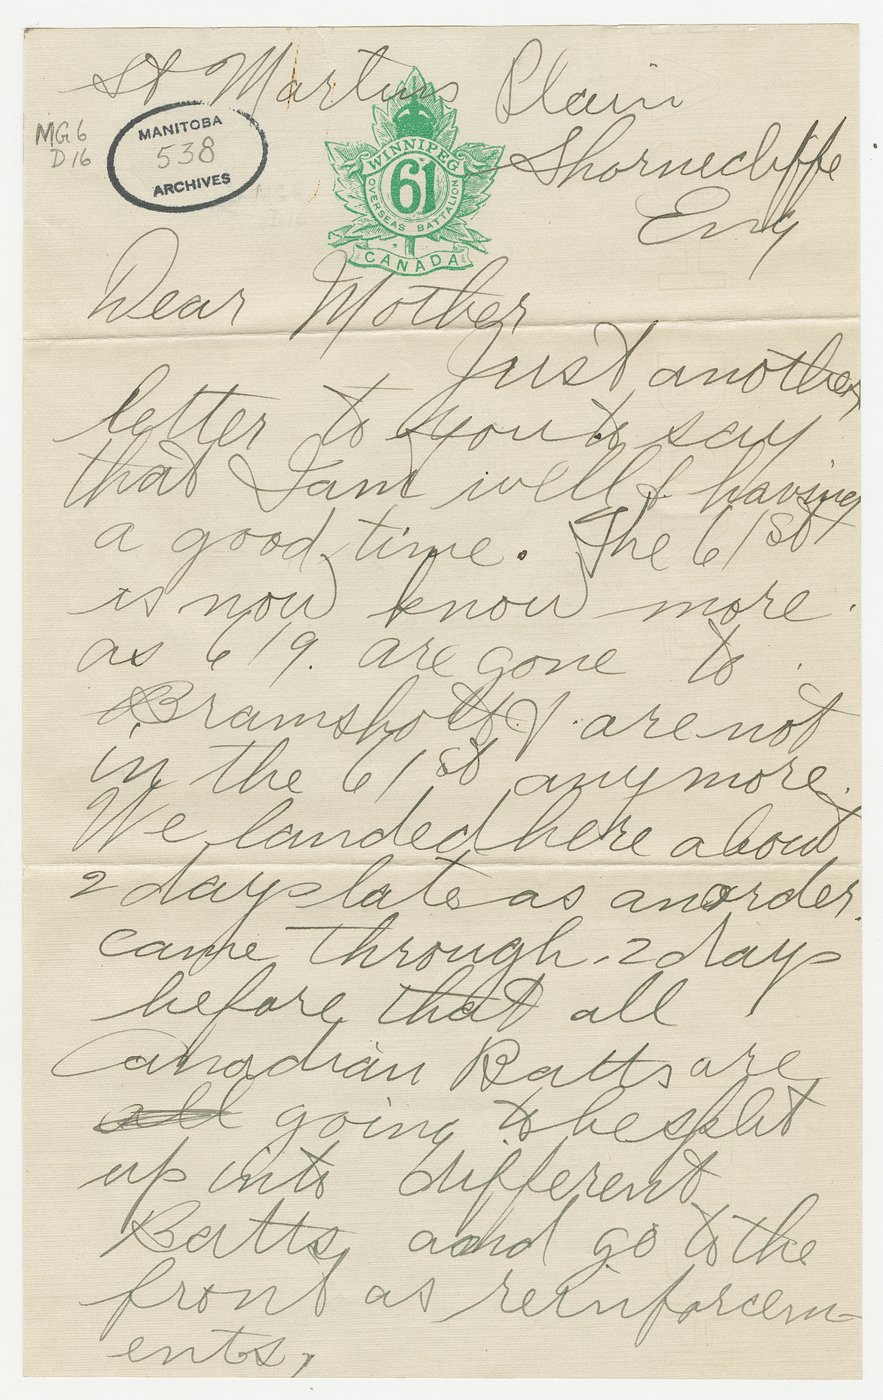 St Martins Plain
MG6
D16
MANITOBA
538
ARCHIVES
WINNIPEG
61
OVERSEAS BATTALION
CANADA
Shornecliffe
Eng
Dear Mother
Just another
letter to you to say
that I am well & having
a good time. The 61st
is now know more.
as 619. are gone to
Bramshott & are not
in the 61st anymore.
We landed here about
2 days late as an order
came through 2 days
before that all
Canadian Batts are
all going to be split
up into different
Batts and go to the
front as reinforcem-
ents,